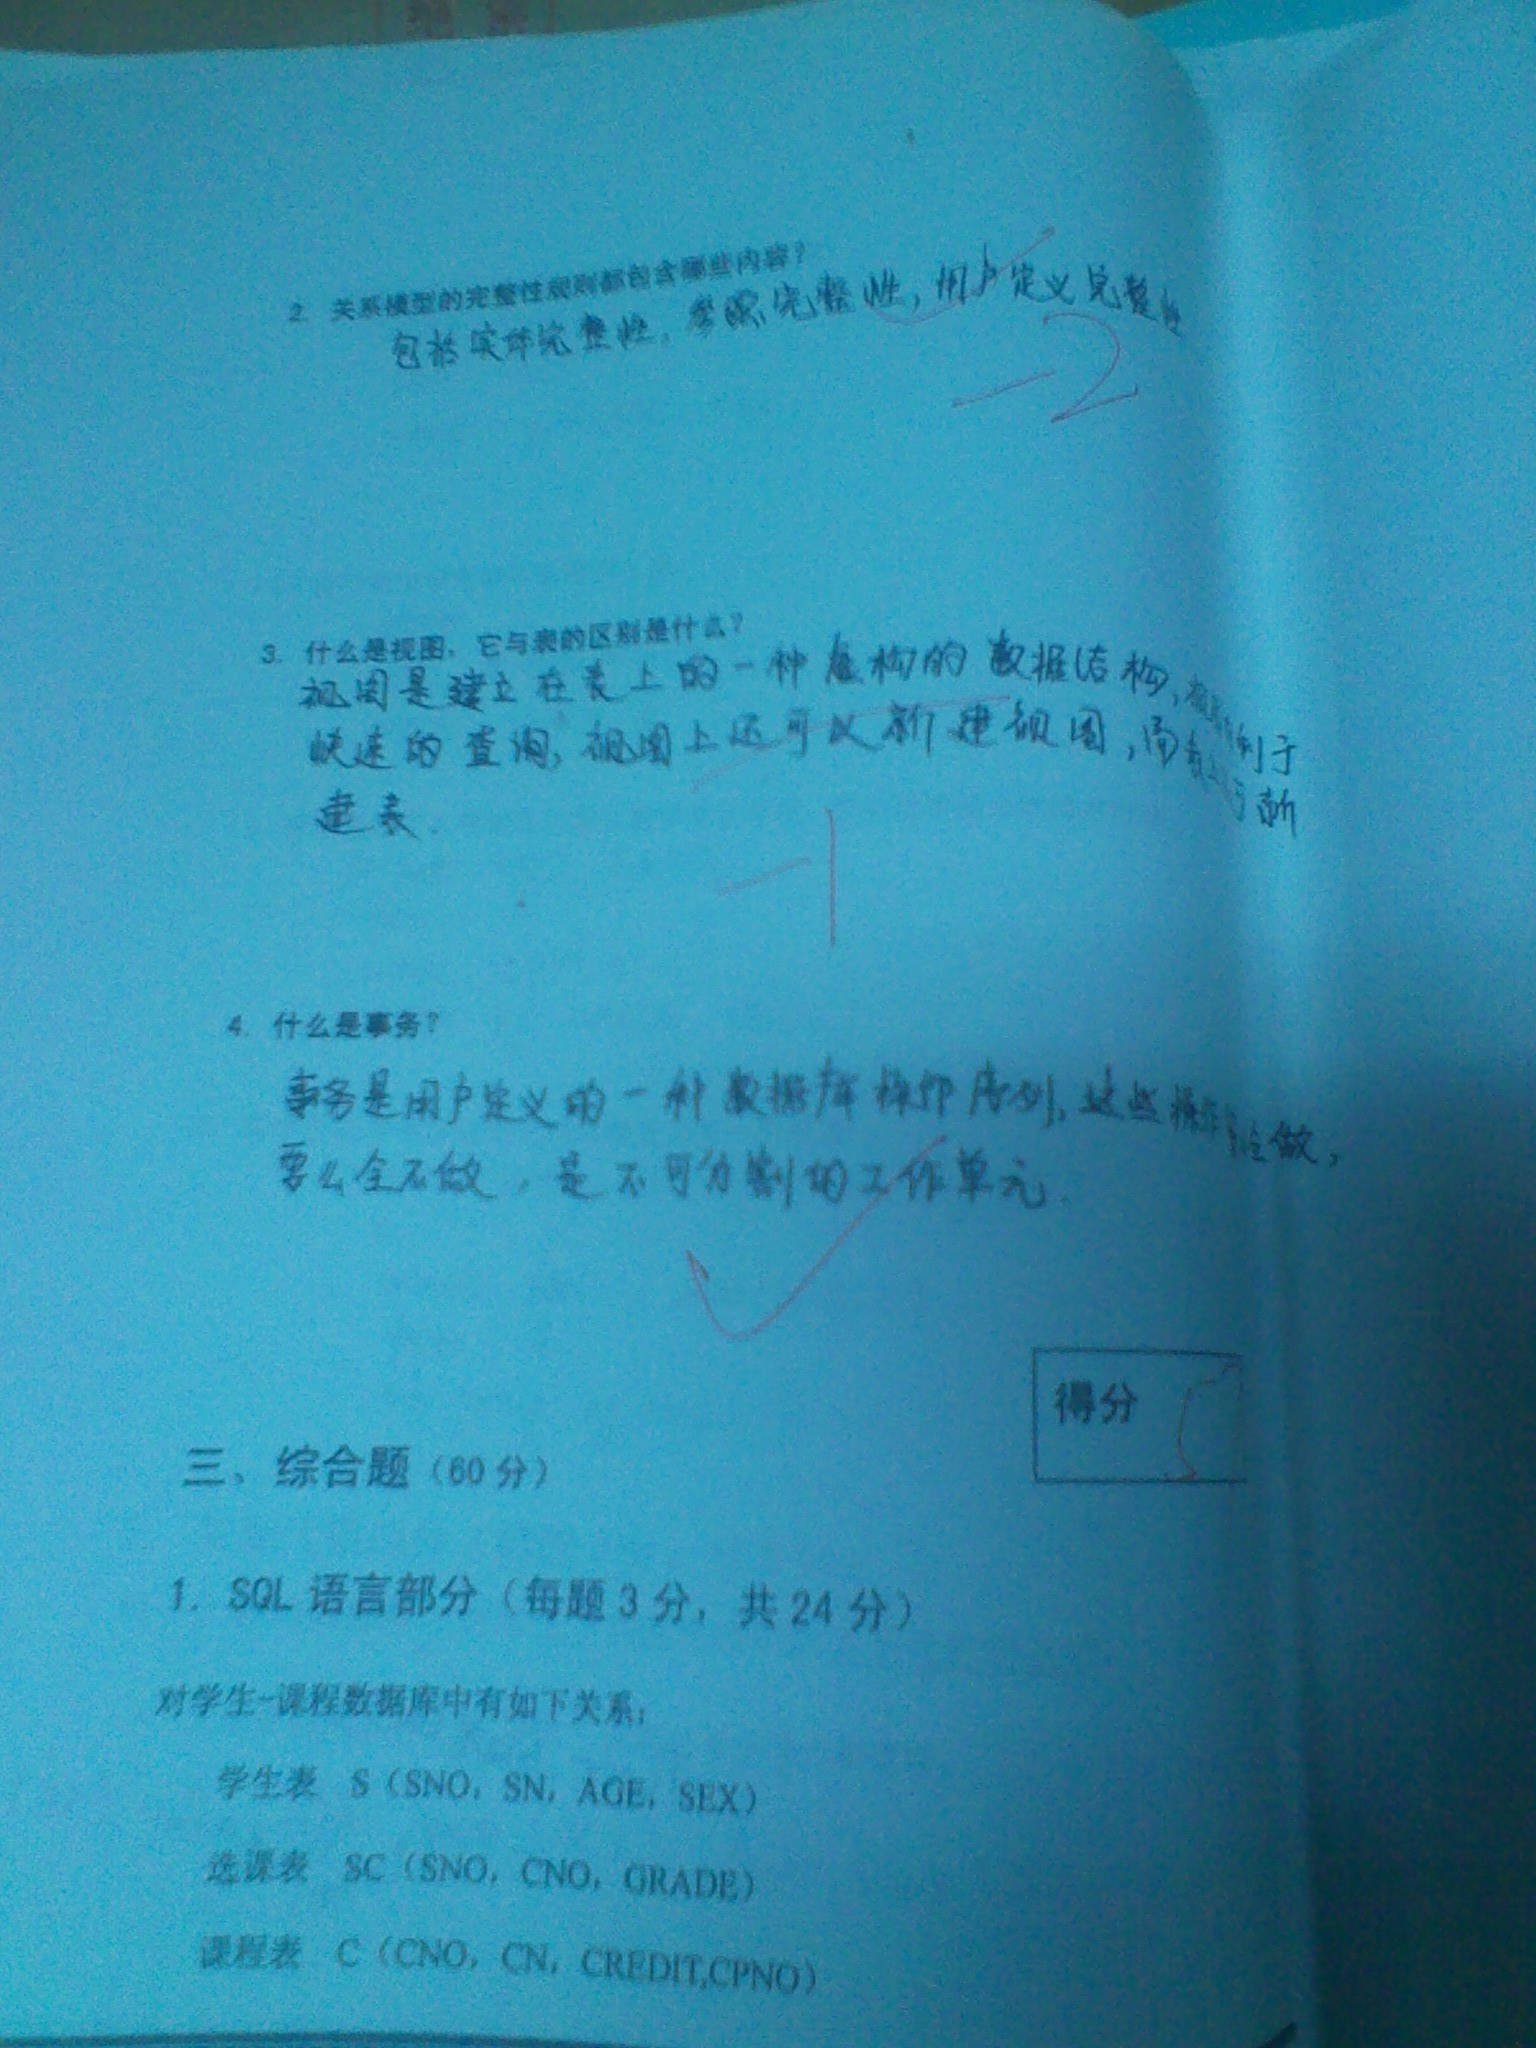 2. 关系模型的完整性规则都包含哪些内容？
包括实体完整性，参照完整性，用户定义完整性
-2
3. 什么是视图，它与表的区别是什么？
视图是建立在表上的一种虚构的数据结构，利于
快速的查询，视图上还可以新建视图，而表上新
建表.
-1
4. 什么是事务？
事务是用户定义的一种数据库操作序列，这些操作全做，
要么全不做，是不可分割的工作单元.
得分
三、综合题（60 分）
1. SQL 语言部分（每题 3 分，共 24 分）
对学生-课程数据库中有如下关系：
学生表 S（SNO，SN，AGE，SEX）
选课表 SC（SNO，CNO，GRADE）
课程表 C（CNO，CN，CREDIT,CPNO）